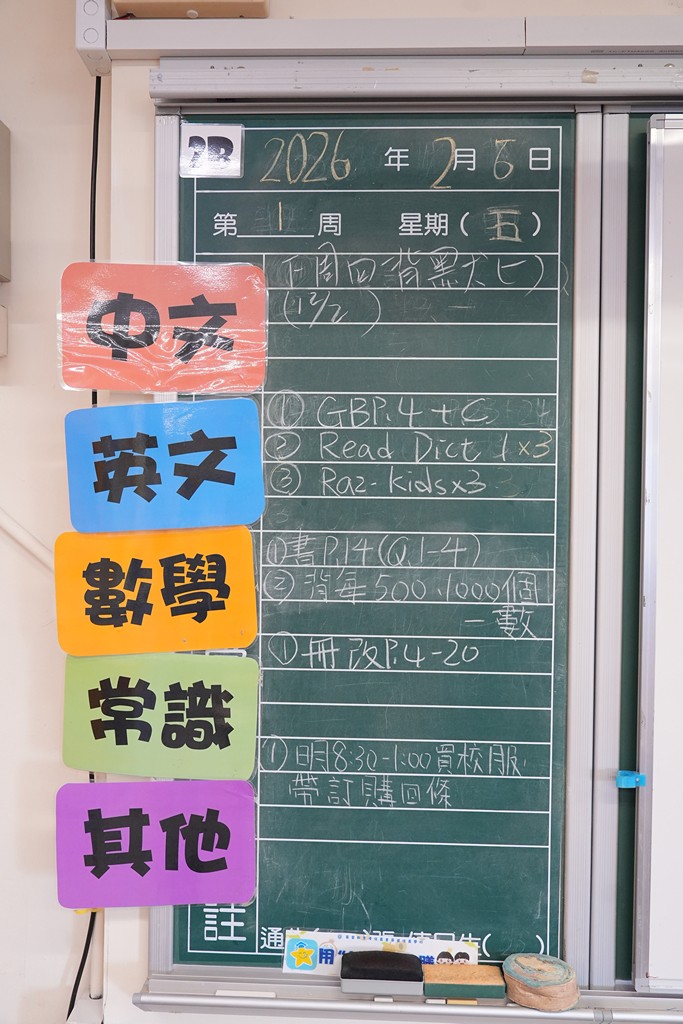 2B 2026 年 2 月 6 日
第 1 周 星期( 五 )
中文
下周四背黑犬ヒ)
(12/2 )
英文
① GBP.4 + C
② Read Dict 1 ×3
③ Raz-kids×3
數學
①書P.14(Q.1-4)
②背每500、1000個
一數
常識
①冊改P.4-20
其他
① 明8:30-1:00買校服
帶訂購回條
註
通告( )張 值日生( )
用